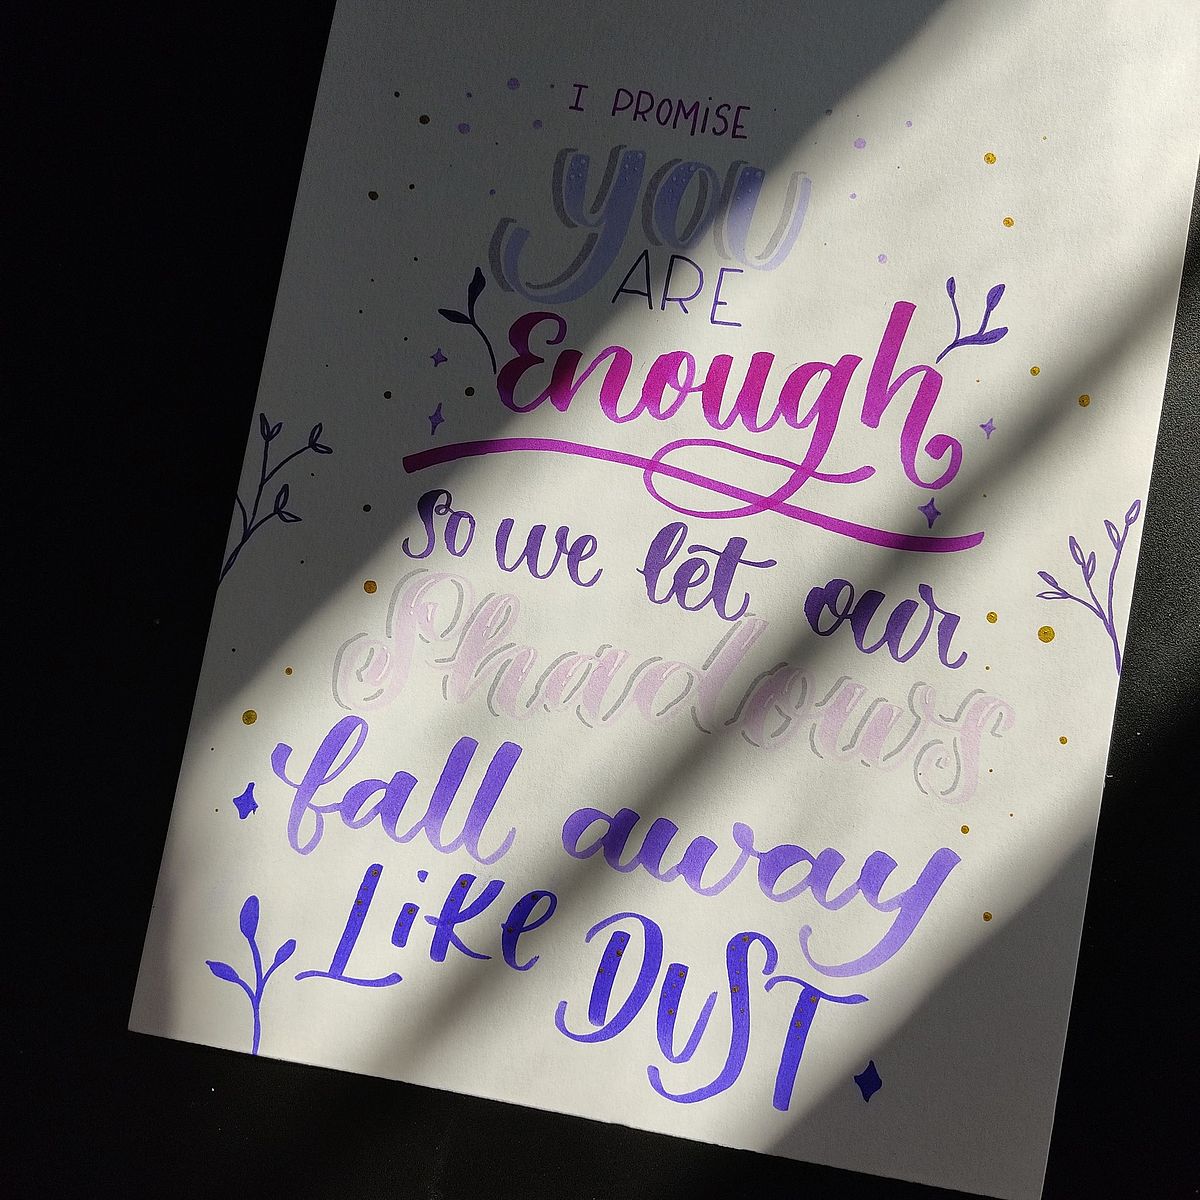 I PROMiSE
you
ARE
Enough
So we let our
Shadows
fall away
LiKe DUST